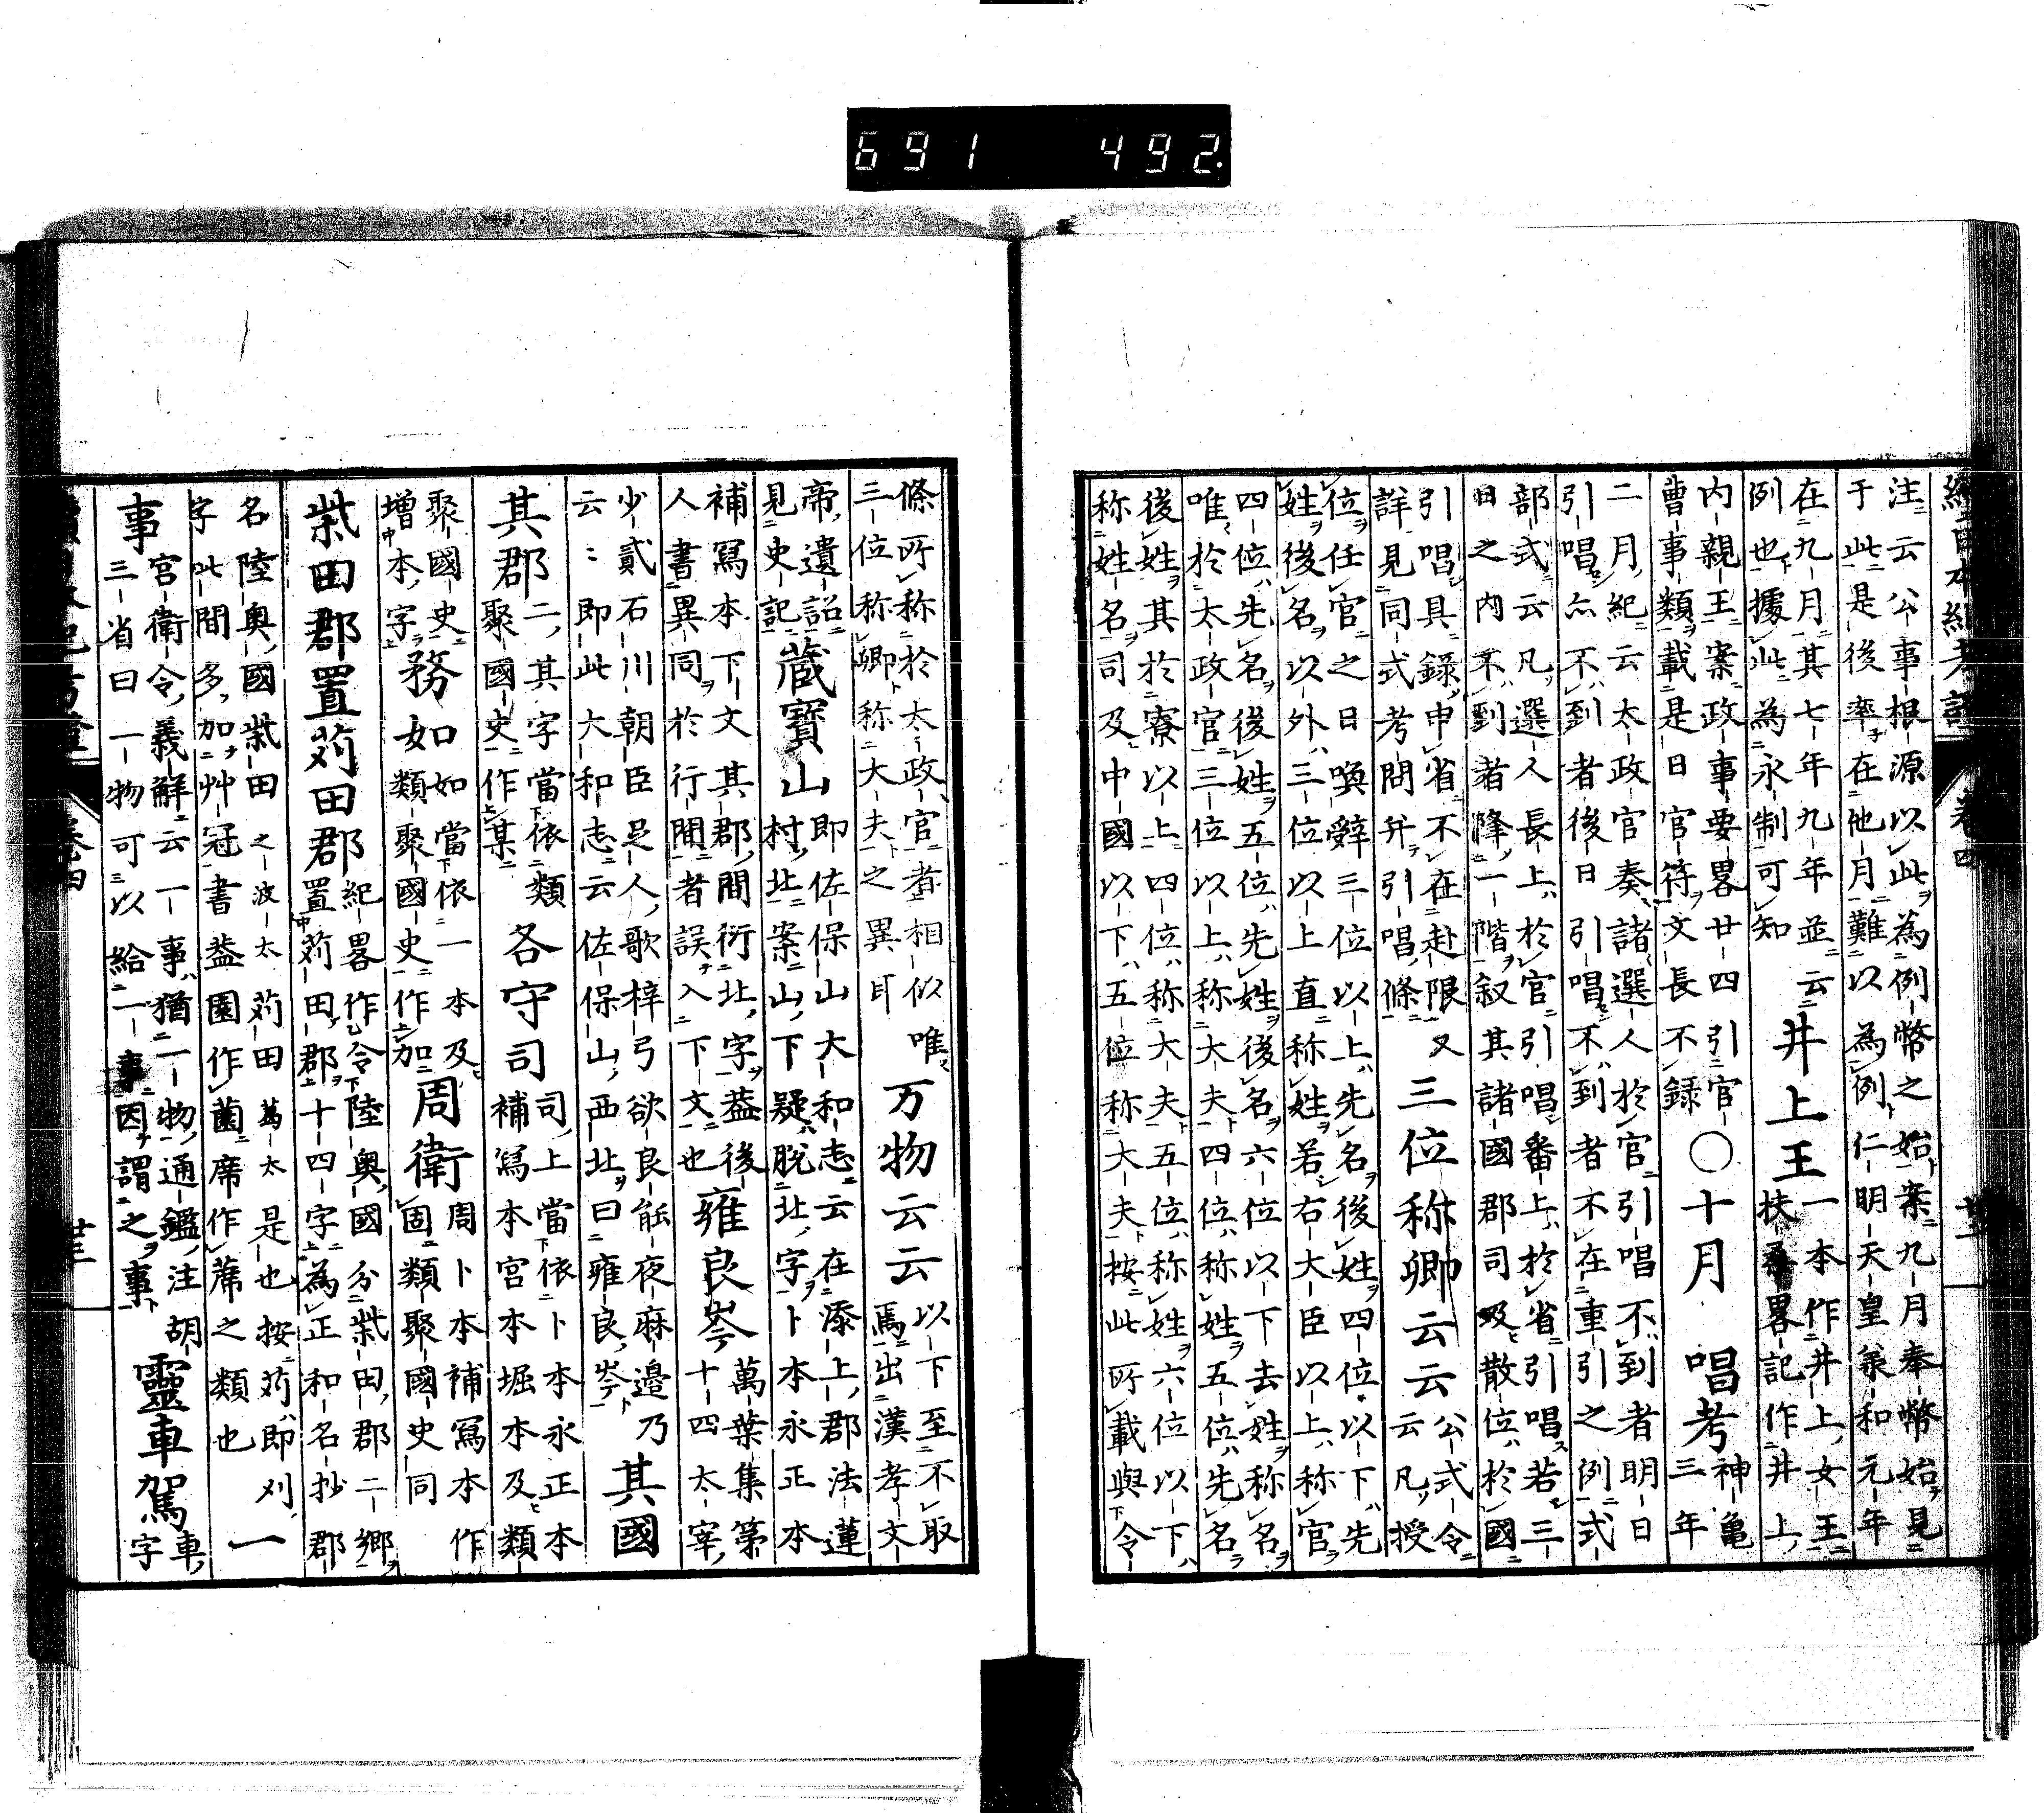 691 492
注云公事根源以此為例幣之始案九月奉幣始見
于此是後率在他月難以為例仁明天皇承和元年
在九月其七年九年並云
例也據此為永制可知
井上王
一本作井上女王
扶桑畧記作井上
内親王案政事要畧廿四引官
曹事類載是日官符文長不録
○十月
唱考
神亀
三年
二月紀云太政官奏諸選人於官引唱不到者明日
引唱点不到者後日引唱不到者不在重引之例式
部式云凡選人長上於官引唱番上於省引唱若三
日之内不到者降一階叙其諸國郡司及散位於國
引唱具録申省不在赴限又
詳見同式考問并引唱條
三位称卿云云
公式令
云凡授
位任官之日喚辞三位以上先名後姓四位以下先
姓後名以外三位以上直称姓若右大臣以上称官
四位先名後姓五位先姓後名六位以下去姓称名
唯於太政官三位以上称大夫四位称姓五位先名
後姓其於寮以上四位称大夫五位称姓六位以下
称姓名司及中國以下五位称大夫按此所載與令
條所称於太政官者相似唯
三位称卿称大夫之異耳
万物云云
以下至不取
焉出漢孝文
帝遺詔
見史記
蔵寳山
即佐保山大和志云在添上郡法蓮
村北案山下疑脱北字卜本永正本
補寫本下文其郡間衍北字葢後
人書異同於行間者誤入下文也
雍良岑
萬葉集第
十四太宰
少貳石川朝臣足人歌梓弓欲良能夜麻邉乃
云云即此大和志云佐保山西北曰雍良岑
其國
其郡
二其字當依類
聚國史作某
各守司
司上當依卜本永正本
補寫本宮本堀本及類
聚國史
増本字
務如
如當依一本及
類聚國史作加
周衛
周卜本補寫本作
固類聚國史同
柴田郡置苅田郡
紀畧作令陸奥國分柴田郡二郷
置苅田郡十四字為正和名抄郡
名陸奥國柴田之波太苅田葛太是也按苅即刈
字此間多加艸冠書葢園作薗席作蓆之類也
一
事
宮衛令義解云一事猶一物通鑑注胡
三省曰一物可以給一事因謂之事
靈車駕
車
字